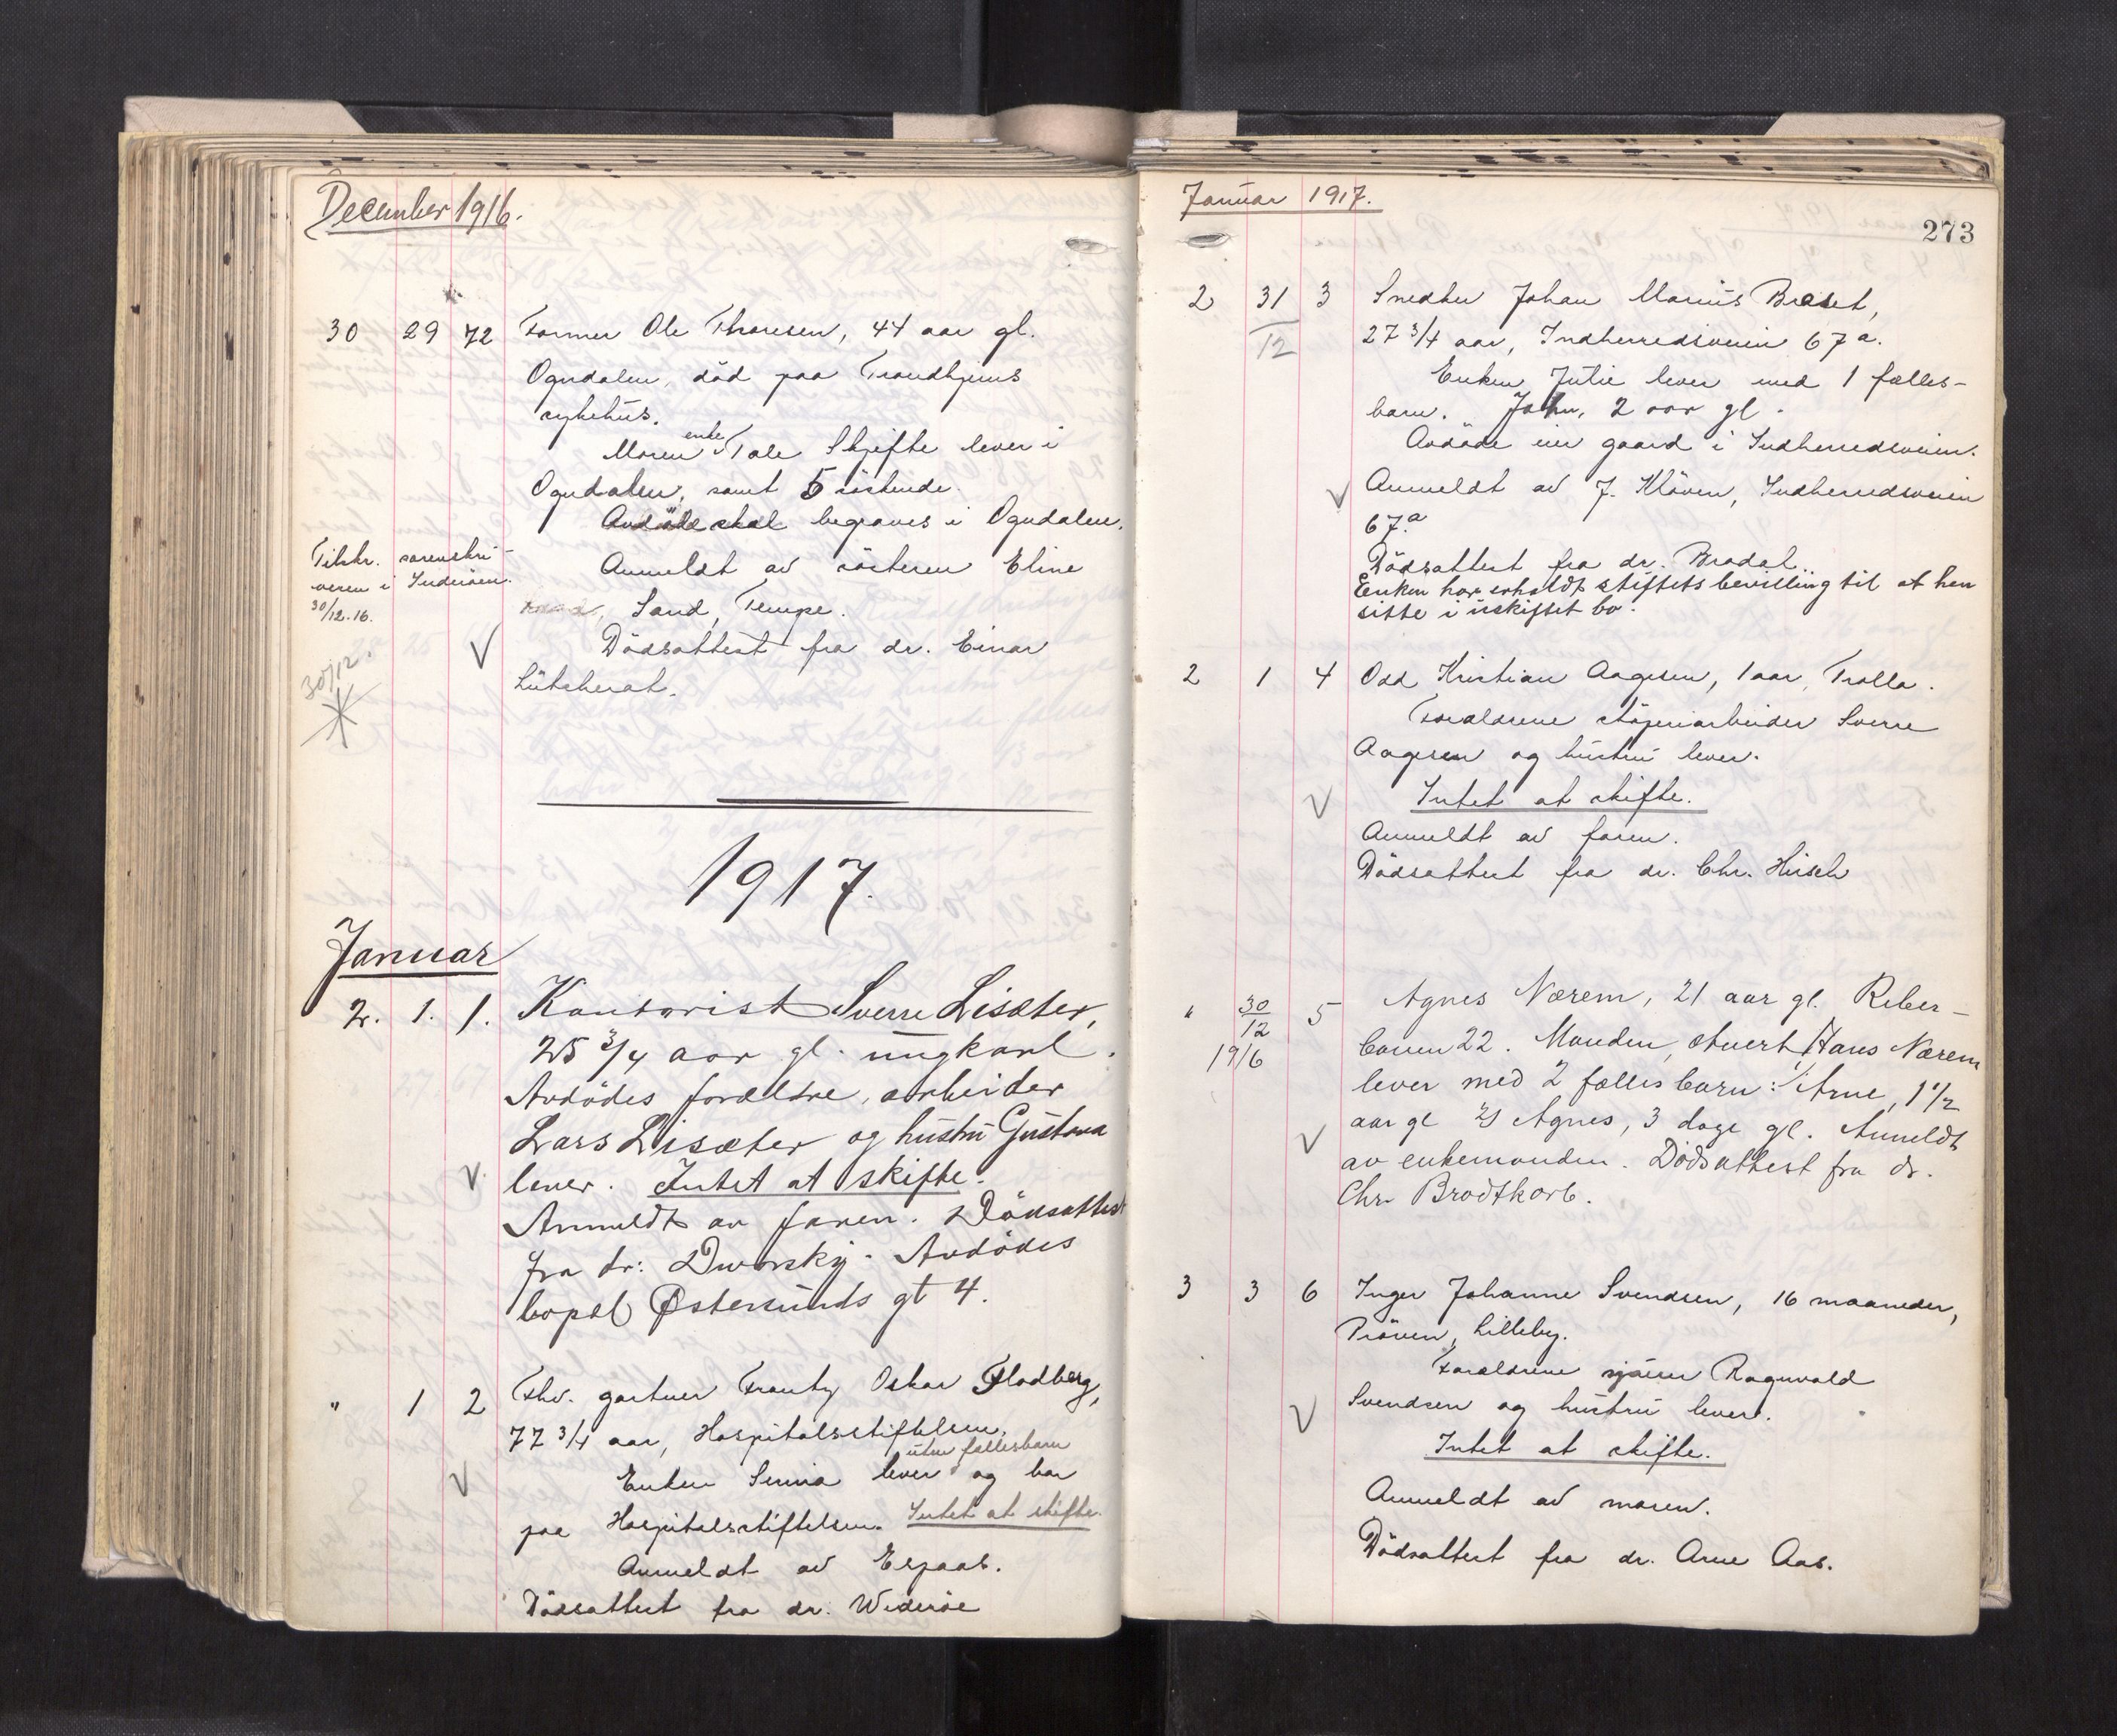 December 1916.
30 29 72 Former Ole Thoresen, 44 aar gl.
Ogndalen, död paa Trondhjems
sykehus.
Moren enke Tale Skjefte lever i
Ogndalen, samt 5 söskende.
Avdöde skal begraves i Ogndalen.
Tilskr. sorenskri-
veren i Inderöen.
30/12.16.
Anmeldt av sösteren Eline
Sand, Tempe.
Dödsattest fra dr. Einar
Lütcherat.
30/12.
1917.
Januar
2. 1. 1. Kontorist Sverre Lisæter,
25 3/4 aar gl. ungkarl.
Avdödes forældre, arbeider
Lars Lisæter og hustru Gustava
lever. Intet at skifte.
Anmeldt av faren. Dödsattest
fra dr: Dworsky. Avdödes
bopæl Østersunds gt 4.
" 1 2 Fhv. gartner Frantz Oskar Flodberg,
77 3/4 aar, Hospitalsstiftelsen.
uten fællesbarn
Enken Serina lever og bor
paa Hospitalsstiftelsen. Intet at skifte.
Anmeldt av Espaas.
Dödsattest fra dr. Wideröe
Januar 1917.
273
2 31/12 3 Snedker Johan Marius Braset,
27 3/4 aar, Indherredsveien 67 a.
Enken Julie lever med 1 fælles-
barn. John, 2 aar gl.
Avdöde eier gaard i Indherredsveien.
Anmeldt av J. Klöven, Indherredsveien
67.a
Dödsattest fra dr. Bradal.
Enken har erholdt stiftets bevilling til at hen
sitte i uskiftet bo.
2 1 4 Odd Kristian Aagesen, 1 aar, Trolla.
Forældrene støperiarbeider Sverre
Aagesen og hustru lever.
Intet at skifte.
Anmeldt av faren.
Dödsattest fra dr. Chr. Hirsch
" 30/12 1916 5 Agnes Nærem, 21 aar gl. Ribers-
borren 22. Manden, stuert Hans Nærem
lever med 2 fælles barn: 1/ Arne, 1 1/2
aar gl 2/ Agnes, 3 dage gl. Anmeldt
av enkemanden. Dödsattest fra dr.
Chr. Brodtkorb.
3 3 6 Inger Johanne Svendsen, 16 maaneder,
Pröven, Lilleby.
Forældrene sjauer Ragnvald
Svendsen og hustru lever.
Intet at skifte.
Anmeldt av moren.
Dödsattest fra dr. Arne Aas.